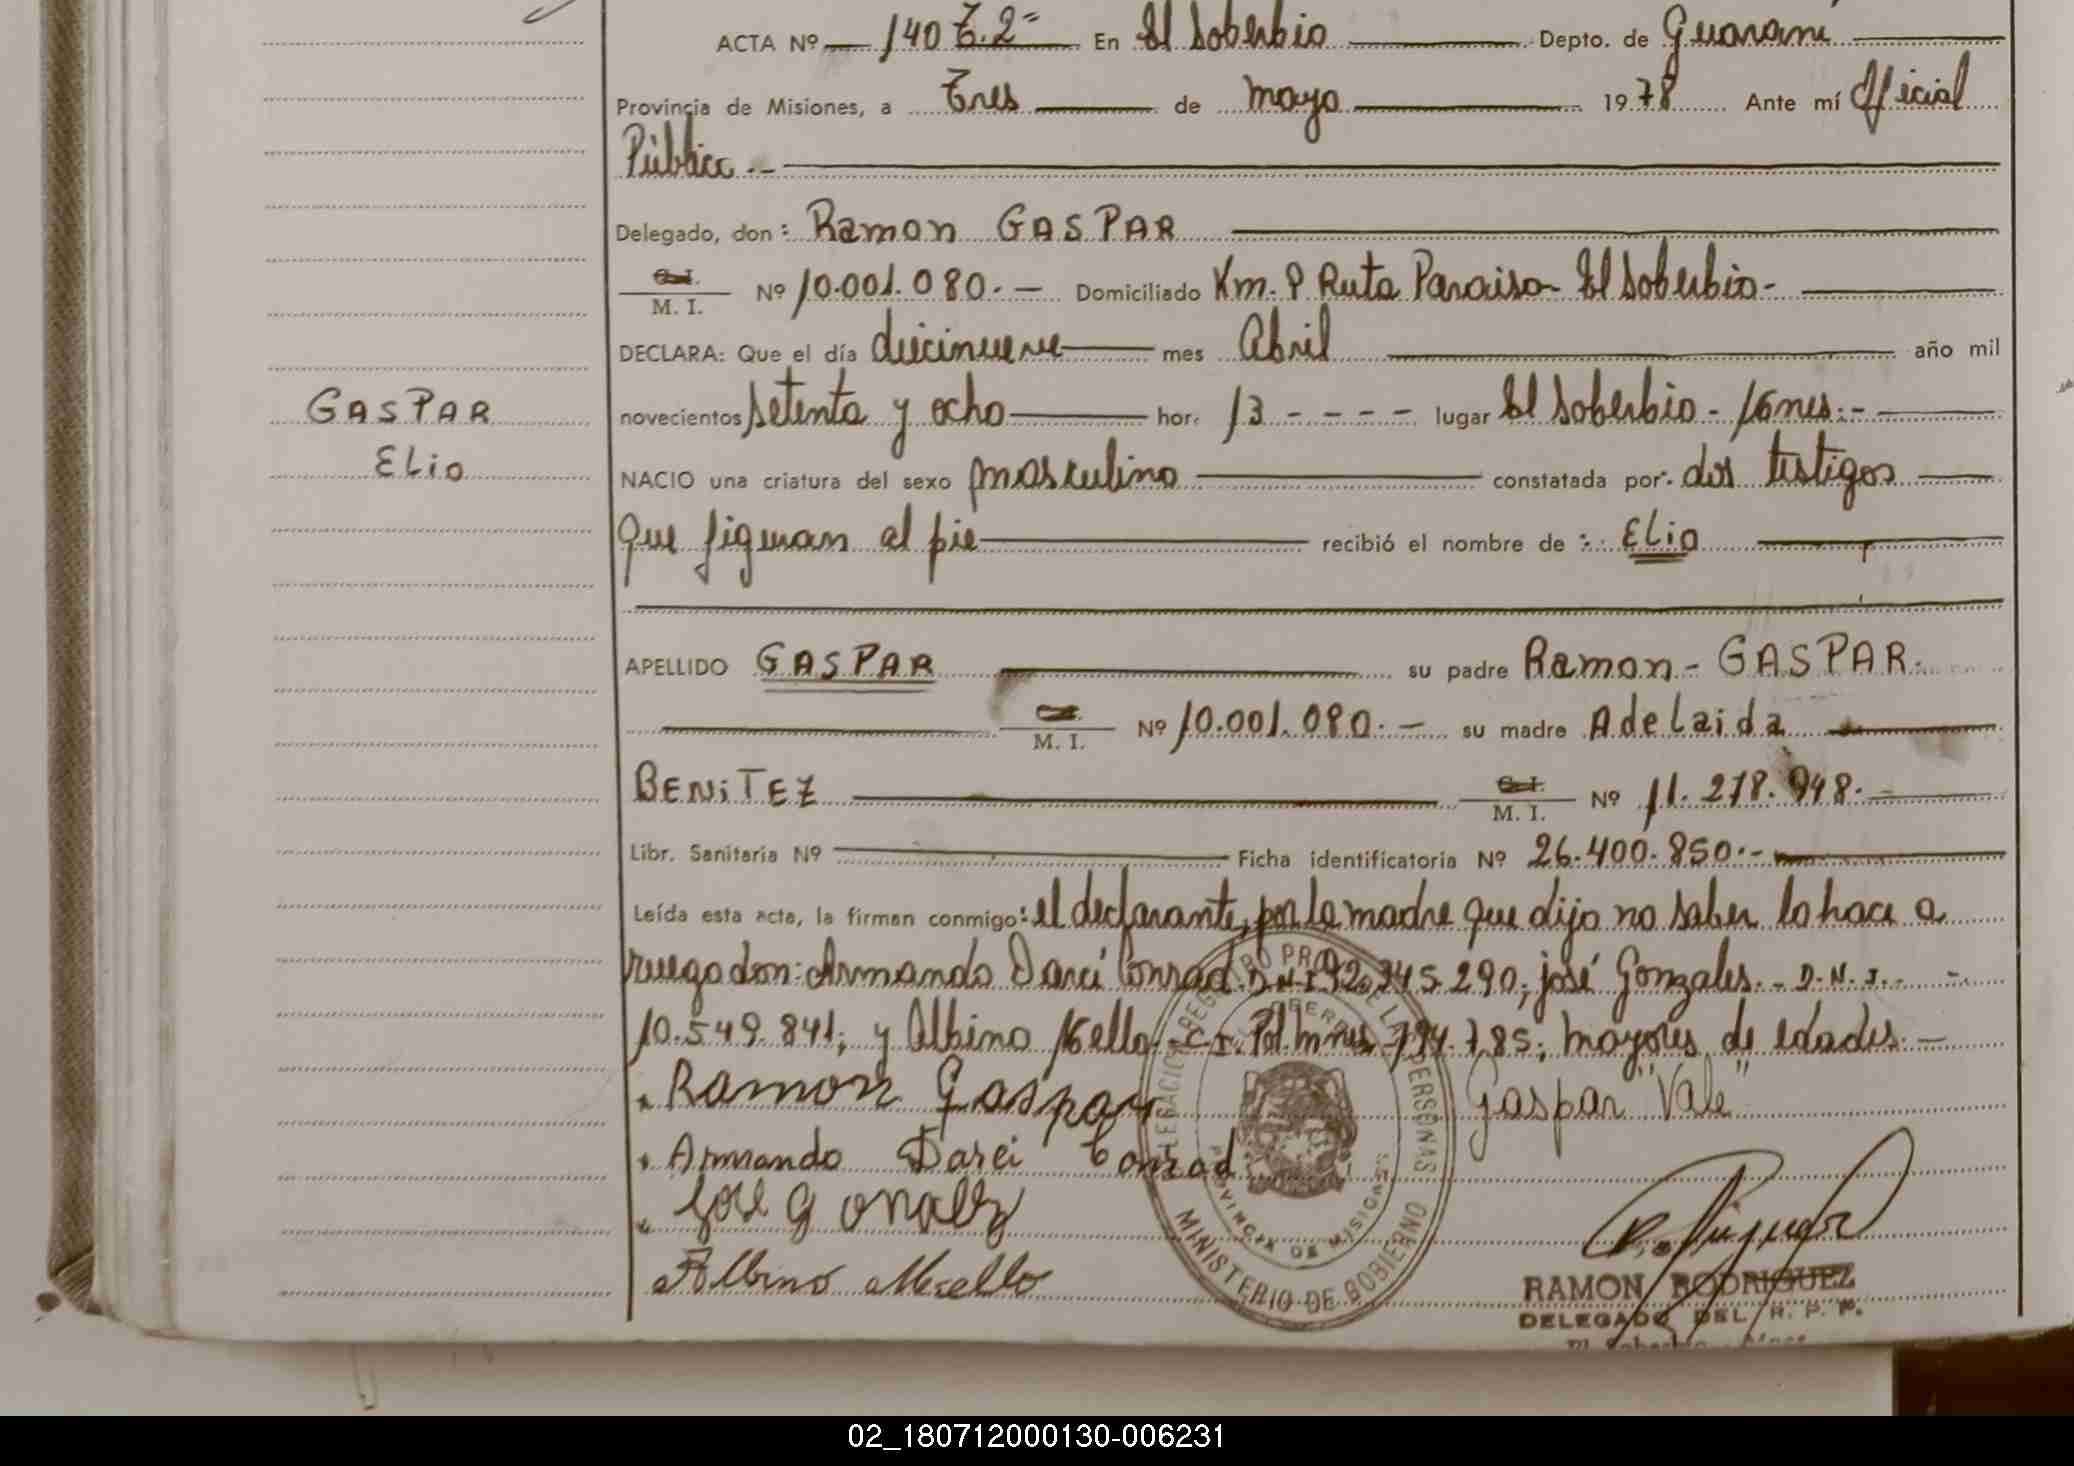 ACTA Nº 140 T. 2º En El Soberbio Depto. de Guaraní
Provincia de Misiones, a Tres de mayo 1978 Ante mí Oficial
Público.-
Delegado, don: Ramon GASPAR
C. I. M. I. Nº 10.001.080.- Domiciliado Km. 8 Ruta Paraiso- El Soberbio-
DECLARA: Que el día diecinueve mes Abril año mil
GASPAR
novecientos setenta y ocho hor. 13 - - - - lugar El Soberbio - Mnes.-
ELio
NACIO una criatura del sexo masculino constatada por: dos testigos
que figuran al pie recibió el nombre de : ELio
APELLIDO GASPAR su padre Ramon - GASPAR.
M. I. Nº 10.001.080.- su madre Adelaida
BENiTEZ C. I. M. I. Nº 11.278.948.-
Libr. Sanitaria Nº Ficha identificatoria Nº 26.400.850.-
Leída esta acta, la firman conmigo: el declarante, por la madre que dijo no saber lo hace a
ruego don: Armando Darci Conrad. D.N.I. 92.345.290; josé Gonzales.- D.N.I.- -
10.549.841; y Albino Mello- C.I. Pol. Mnes. 794.785; mayores de edades.-
Ramon Gaspar Gaspar "Vale"
Armando Darci Conrad
José Gonalez
Albino Mello
REGISTRO PROV. DE LAS PERSONAS
PROVINCIA DE MISIONES
MINISTERIO DE GOBIERNO
RAMON RODRIGUEZ
DELEGADO DEL R. P. P.
El Soberbio - Mnes
02_180712000130-006231